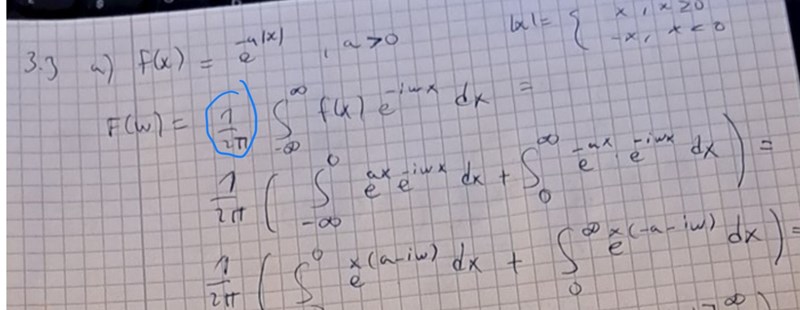 3.3 a) f(x) = e^{-a|x|} , a > 0 |x| = { x, x ≥ 0
-x, x < 0
F(w) = 1/2π ∫_{-∞}^{∞} f(x) e^{-iwx} dx =
1/2π ( ∫_{-∞}^{0} e^{ax} e^{-iwx} dx + ∫_{0}^{∞} e^{-ax} · e^{-iwx} dx ) =
1/2π ( ∫^{0} e^{x(a-iw)} dx + ∫_{0}^{∞} e^{x(-a-iw)} dx ) =